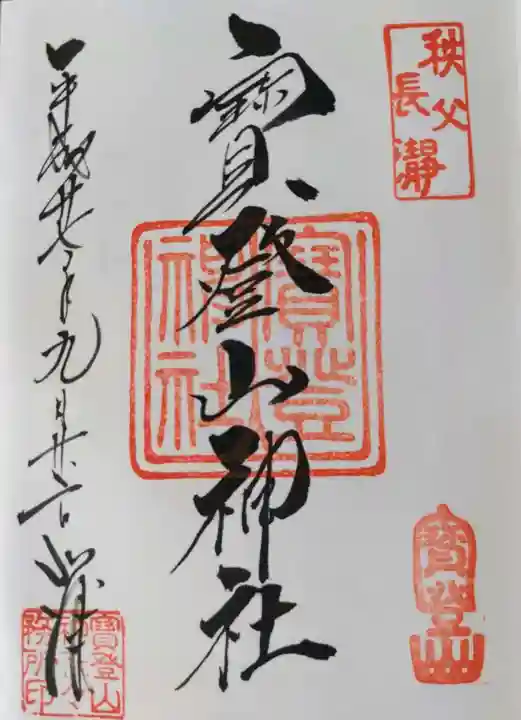 秩父
長瀞
寶登山
寶登山神社
寶登山
神社
平成廿七年九月廿日
寶登山
神社
務所印